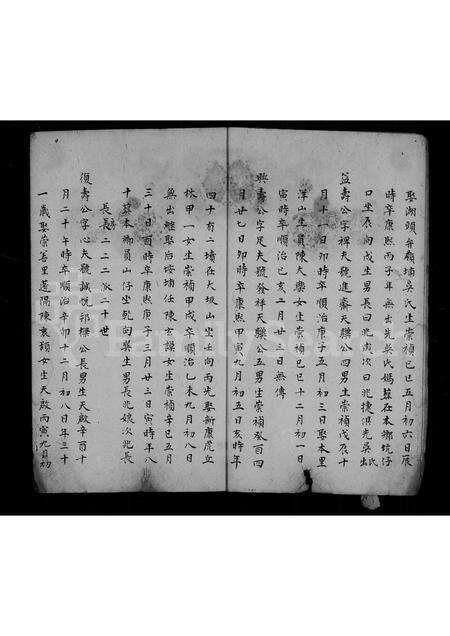 娶湖頭弁厝埔吳氏生崇禎已巳五月初六日辰
時卒康熙丙子年無出先吳氏媽葬在本鄉坑仔
口坐辰向戌生男長曰兆寅次曰兆捷俱先吳氏出
益壽公字裨夫號進齋天驥公四男生崇禎戊辰十
月十一日卯時卒順治庚子五月初三日娶本里
洋山生員陳大樂女生崇禎已巳十二月初一日
寅時卒順治已亥二月廿三日無傳
興壽公字足夫號發祥天驥公五男生崇禎癸酉四
月廿七日卯時卒康熙甲寅九月初五日亥時年
四十有二墳在大圾山坐壬向丙先娶新康虎丘
林甲一女生崇禎甲戌卒順治已未九月初八日
無出繼娶后垵埔任陳玄謨女生崇禎辛巳五月
三十日酉時卒康熙庚子三月廿三日寅時年八
十葬本鄉員山仔坐乾向巽生男長兆嬪次兆長
長房長二二二派二十世
復壽公字心夫號誠悅邦樑公長男生天啟辛酉十
月二十午時卒順治辛卯十二月初八日年三十
一歲娶崇善里蓬陽陳袞穎女生天啟丙寅九月初